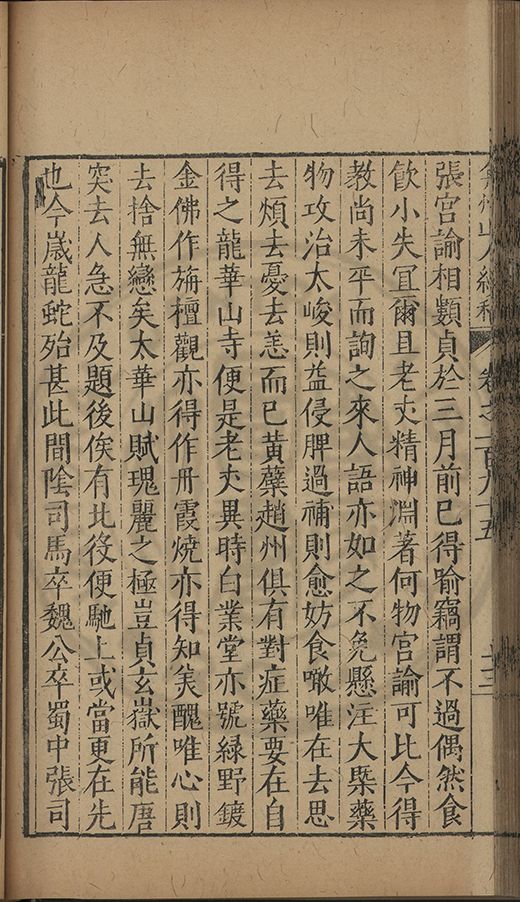 弇州山人續稿 卷之一百九十五 十三
張宮諭相類貞於三月前已得喻竊謂不過偶然食
飲小失冝爾且老丈精神淵著何物宮諭可比今得
教尚未平而詢之來人語亦如之不免懸注大槩藥
物攻治太峻則益侵脾過補則愈妨食噉唯在去思
去煩去憂去恚而已黃蘗趙州俱有對症藥要在自
得之龍華山寺便是老丈異時白業堂亦號綠野鍍
金佛作旃檀觀亦得作丹霞燒亦得知美醜唯心則
去捨無戀矣太華山賦瑰麗之極豈貞玄嶽所能唐
突去人急不及題後俟有北役便馳上或當更在先
也今歲龍蛇殆甚此間陰司馬卒魏公卒蜀中張司